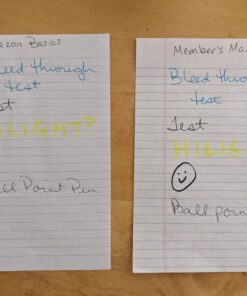 azon Basics
eed through
test
st
LIGHT?
ll Point Pen
Member's Ma
Bleed throu
test
Test
HILIG
Ball poin